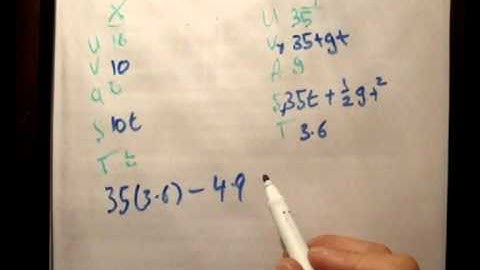 X
U 10
V 10
a 0
S 10t
T t
U 35
Vy 35+gt
A g
Sy 35t + ½gt²
T 3.6
35(3.6) − 4.9